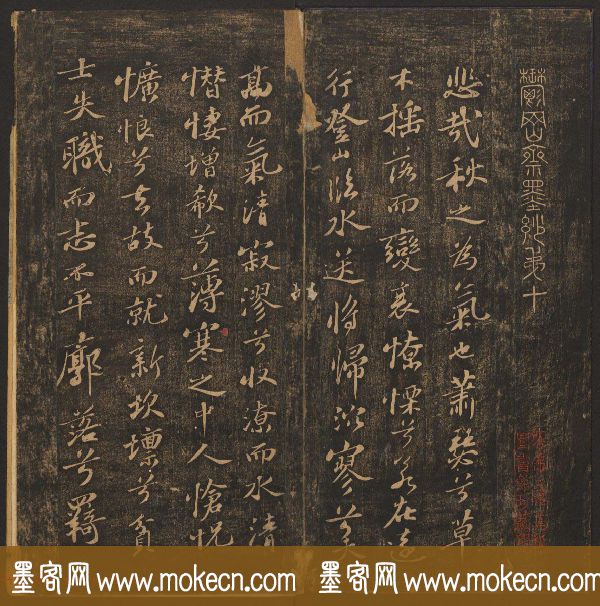 鬱岡齋墨妙第十
悲哉秋之為氣也蕭瑟兮草
木搖落而變衰憭慄兮若在遠
行登山臨水送將歸泬寥兮天
高而氣清寂漻兮收潦而水清
憯悽增欷兮薄寒之中人愴怳
懭悢兮去故而就新坎壈兮貧
士失職而志不平廓落兮羇
墨客网 www.mokecn.com 墨客网 www.mokecn.com